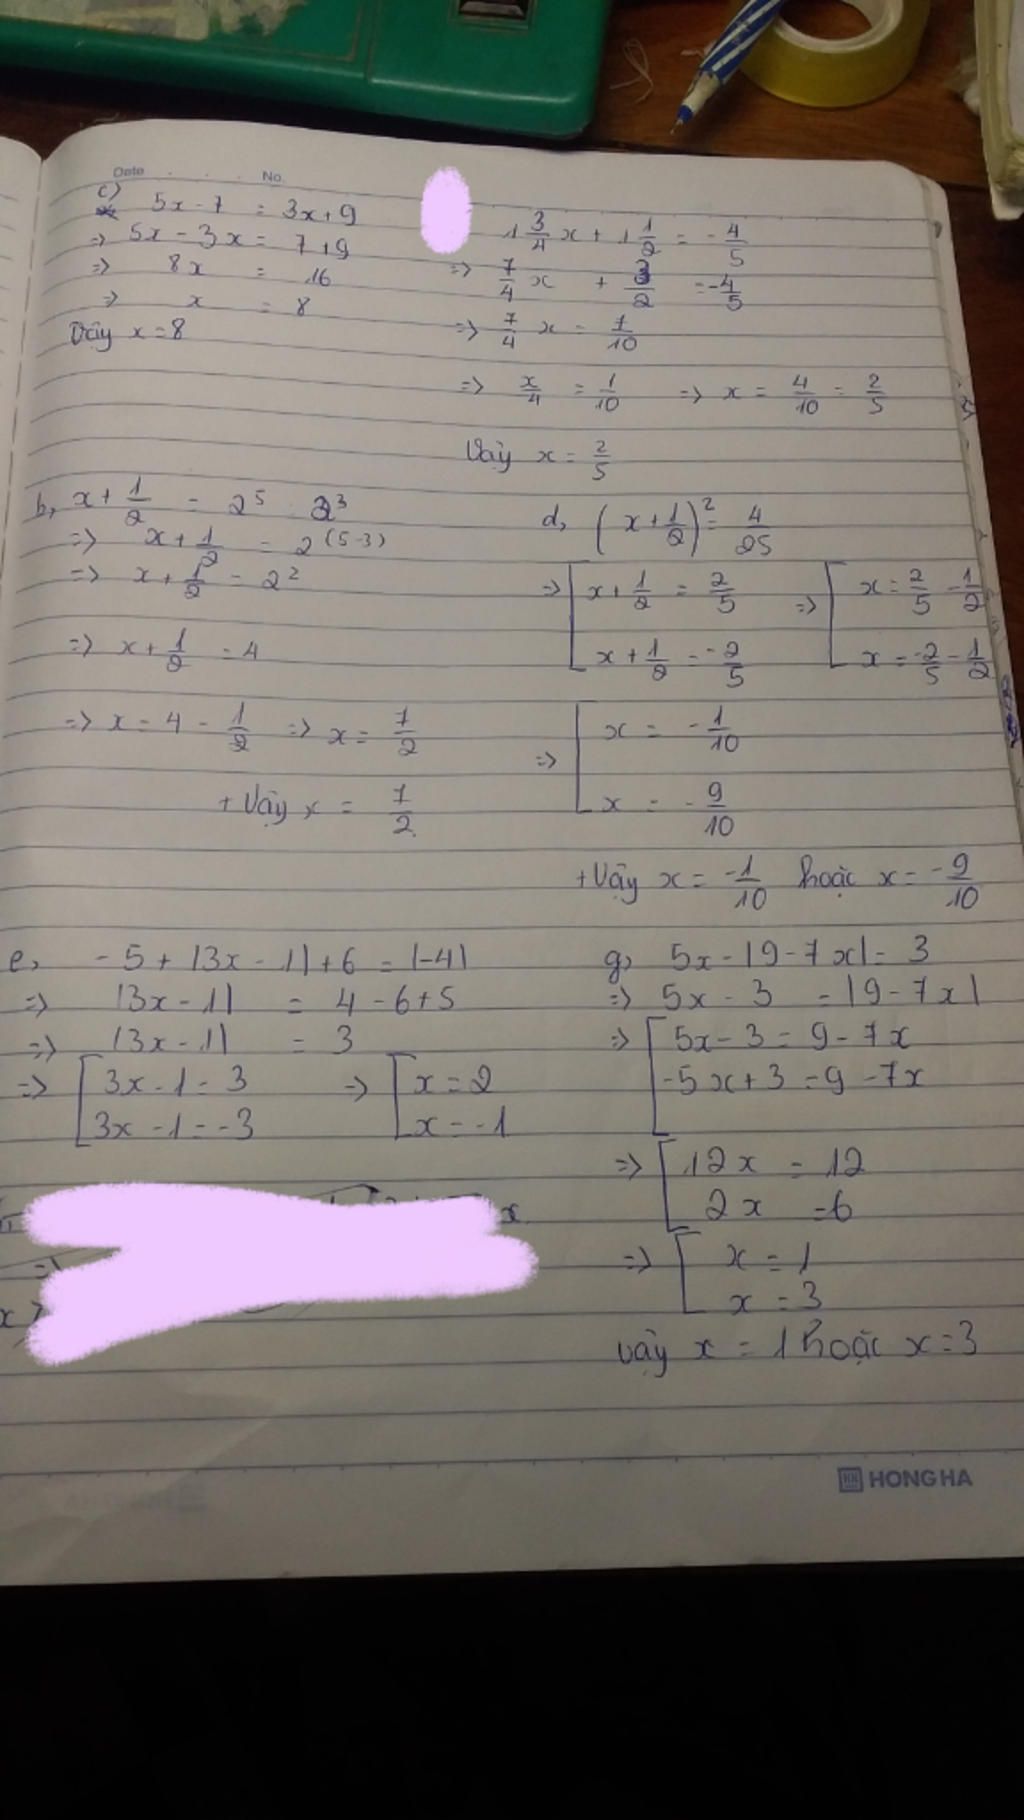 Date No.
c) 5x - 7 = 3x + 9
=> 5x - 3x = 7 + 9
=> 8x = 16
=> x = 8
Vậy x = 8
1 3/4 x + 1 1/2 = -4/5
=> 7/4 x + 3/2 = -4/5
=> 7/4 x = 7/10
=> x/4 = 1/10 => x = 4/10 = 2/5
Vậy x = 2/5
b, x + 1/2 = 2^5 : 2^3
=> x + 1/2 = 2^(5-3)
=> x + 1/2 = 2^2
=> x + 1/2 = 4
=> x = 4 - 1/2 => x = 7/2
+ Vậy x = 7/2
d, (x + 1/2)^2 = 4/25
=> [ x + 1/2 = 2/5 => [ x = 2/5 - 1/2
x + 1/2 = -2/5 x = -2/5 - 1/2
=> [ x = -1/10
x = -9/10
+ Vậy x = -1/10 hoặc x = -9/10
e, -5 + |3x - 1| + 6 = |-4|
=> |3x - 1| = 4 - 6 + 5
=> |3x - 1| = 3
=> [ 3x - 1 = 3 => [ x = 2
3x - 1 = -3 x = -1
g, 5x - |9 - 7x| = 3
=> 5x - 3 = |9 - 7x|
=> [ 5x - 3 = 9 - 7x
-5x + 3 = 9 - 7x
=> [ 12x = 12
2x = 6
=> [ x = 1
x = 3
Vậy x = 1 hoặc x = 3
HONG HA